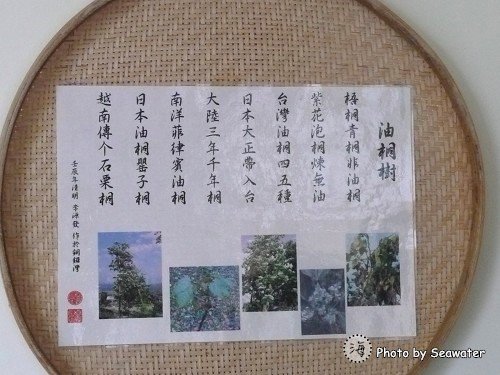 油桐樹
梧桐青桐非油桐
紫花泡桐煉無油
台灣油桐四五種
日本大正帶入台
大陸三年千年桐
南洋菲律賓油桐
日本油桐罌子桐
越南傳个石栗桐
壬辰年清明 李源發 作於銅鑼灣
海 Photo by Seawater